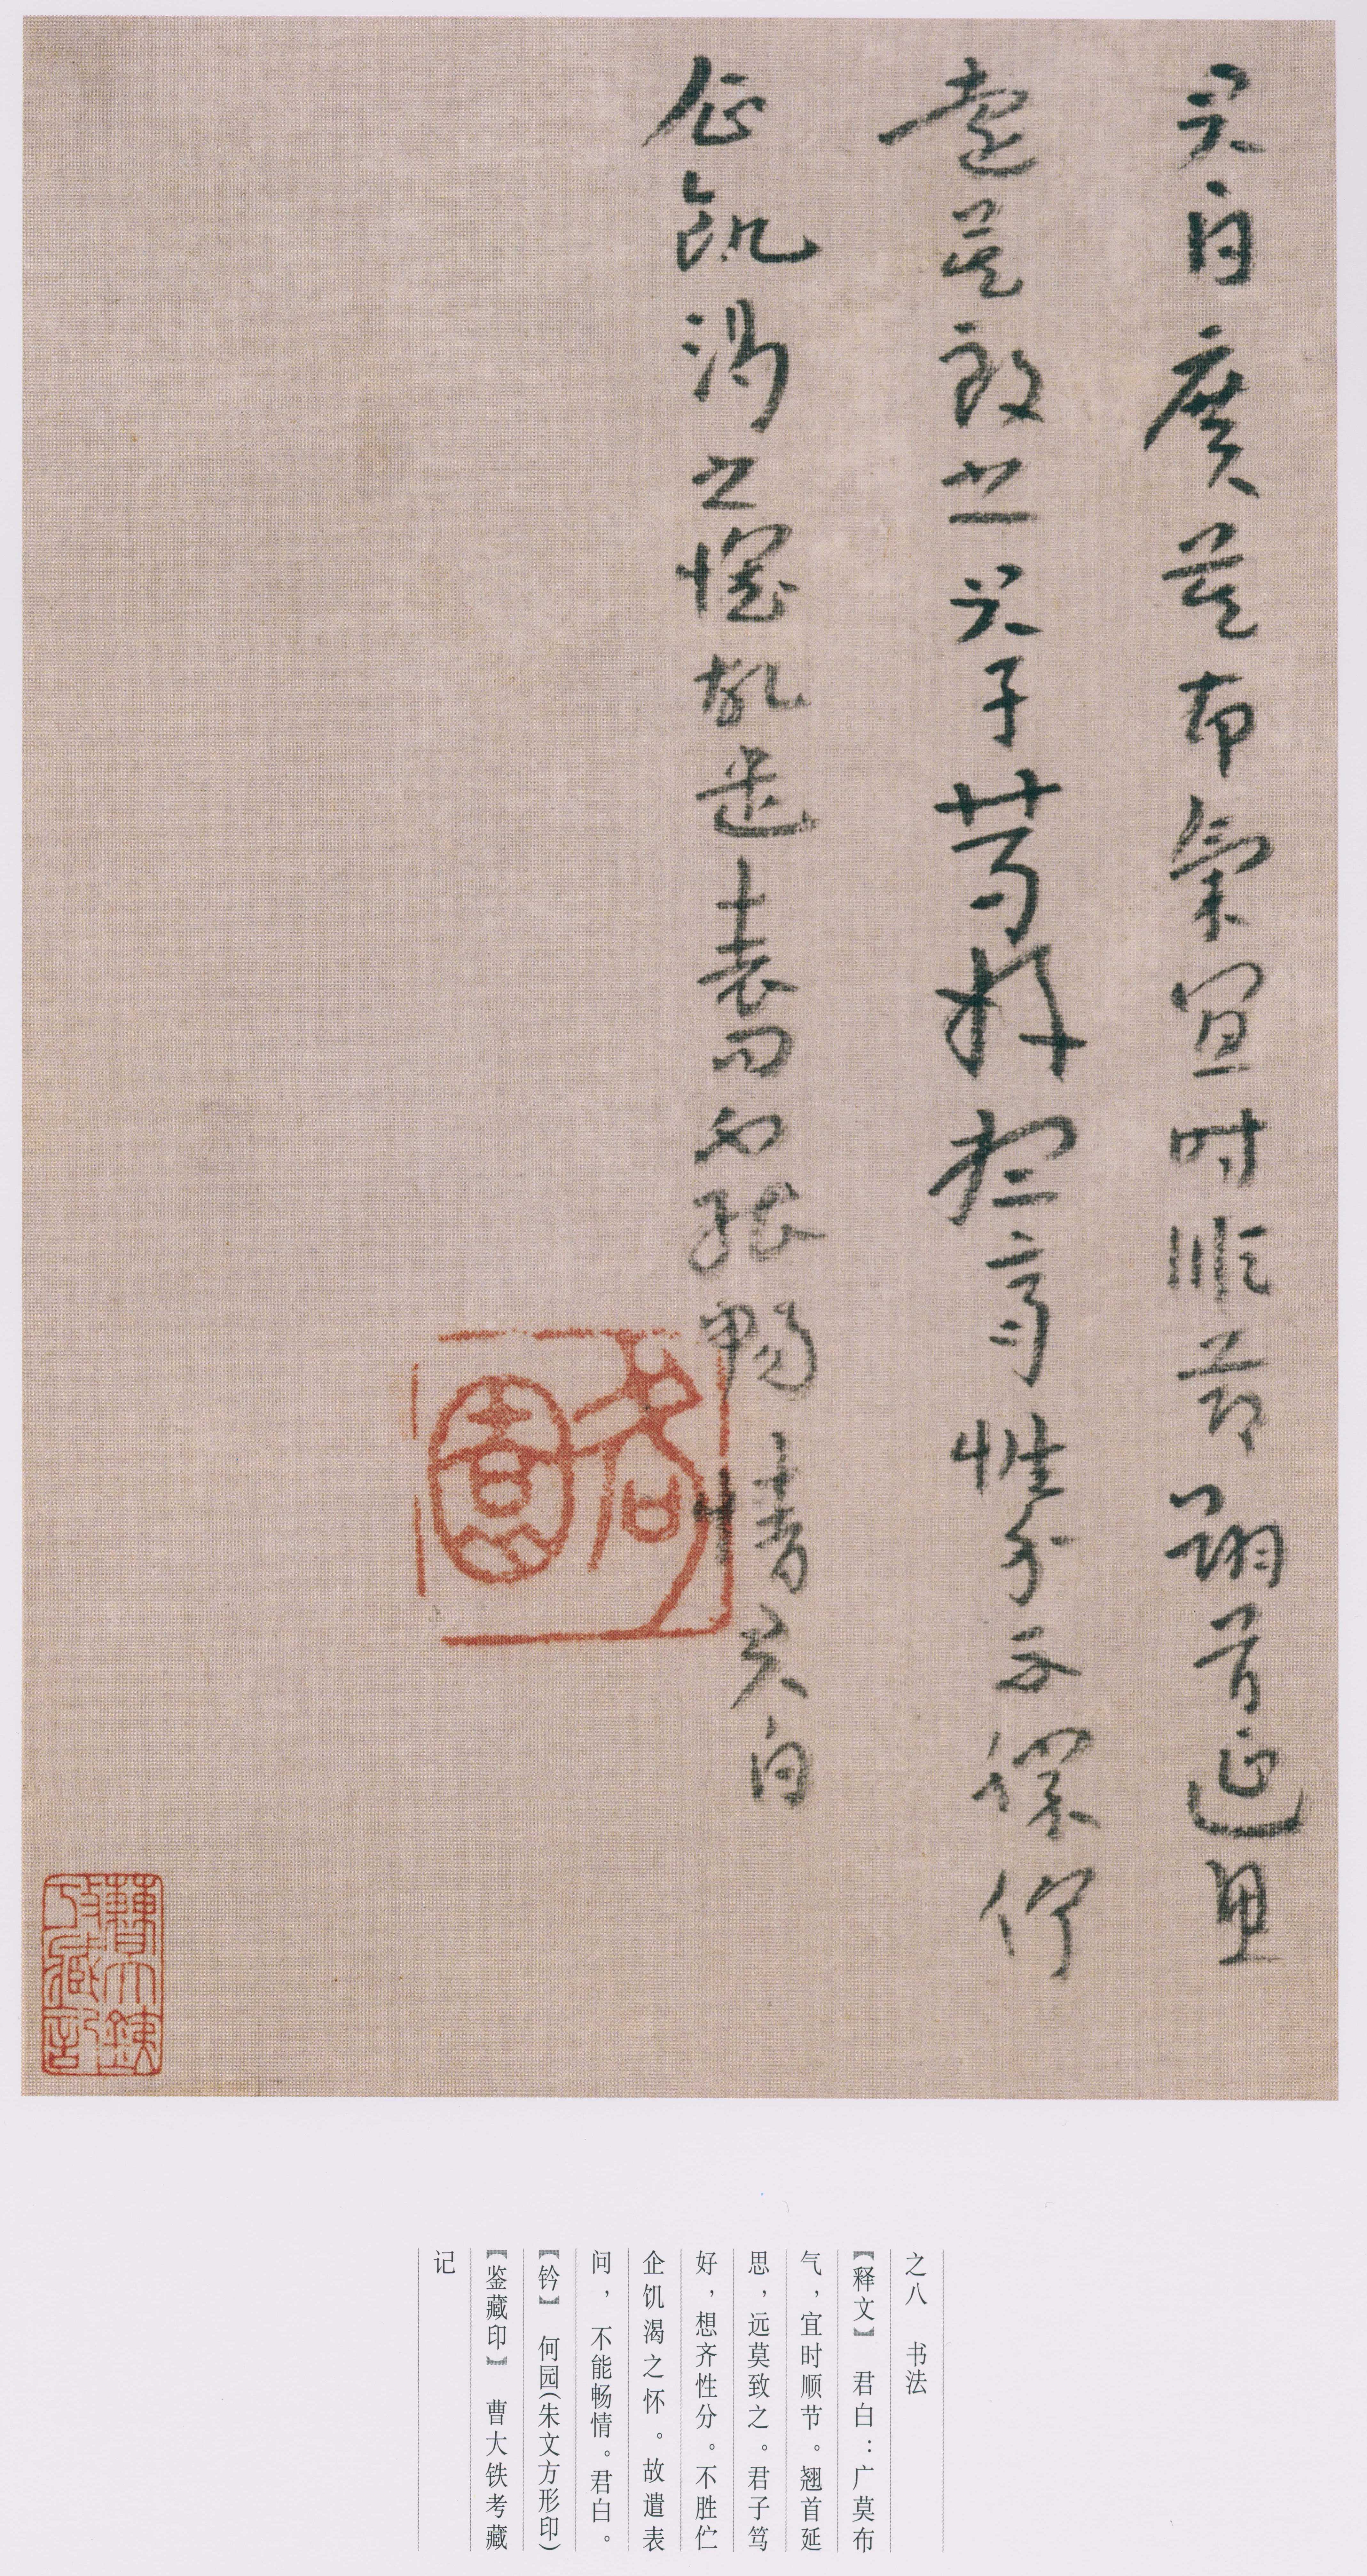 君白廣莫布氣宜時順節翹首延思
遠莫致之君子篤好想齊性分不深佇
企飢渴之懷故遣表問不能暢情君白
曹大鐵
攷藏記
之八　书法
【释文】　君白：广莫布
气，宜时顺节。翘首延
思，远莫致之。君子笃
好，想齐性分。不胜伫
企饥渴之怀。故遣表
问，不能畅情。君白。
【钤】　何园(朱文方形印)
【鉴藏印】　曹大铁考藏
记